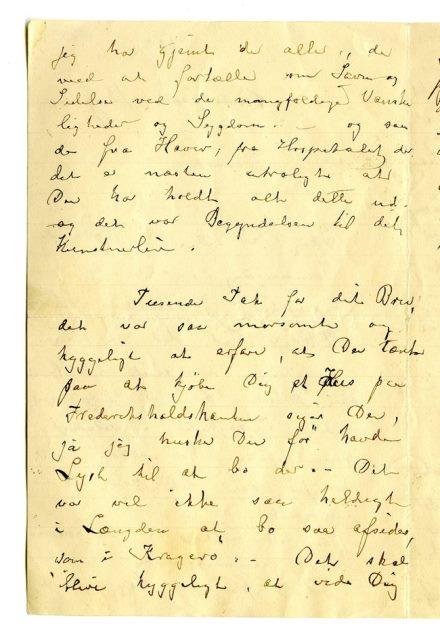 jeg har gjemt de alle, de
med at fortælle om Savn og
Lidelse ved de mangfoldige Vanske
ligheder og Sygdom. – og saa
de fra Havre, fra Hospitalet der
det er næsten utroligt at
Du har holdt alt dette ud.
og det var Begyndelsen til dit
Kunstnerliv.
Tusende Tak for dit Brev,
det var saa morsomt og
hyggeligt at erfare, at Du tænker
paa at kjøbe Dig et Hus paa
Frederikshaldskanten siger Du,
ja jeg husker Du før havde
Lyst til at bo der. – Det
var vel ikke saa heldigt
i Længden at bo saa afsides,
som i Kragerø. – Det skal
blive hyggeligt, at vide Dig